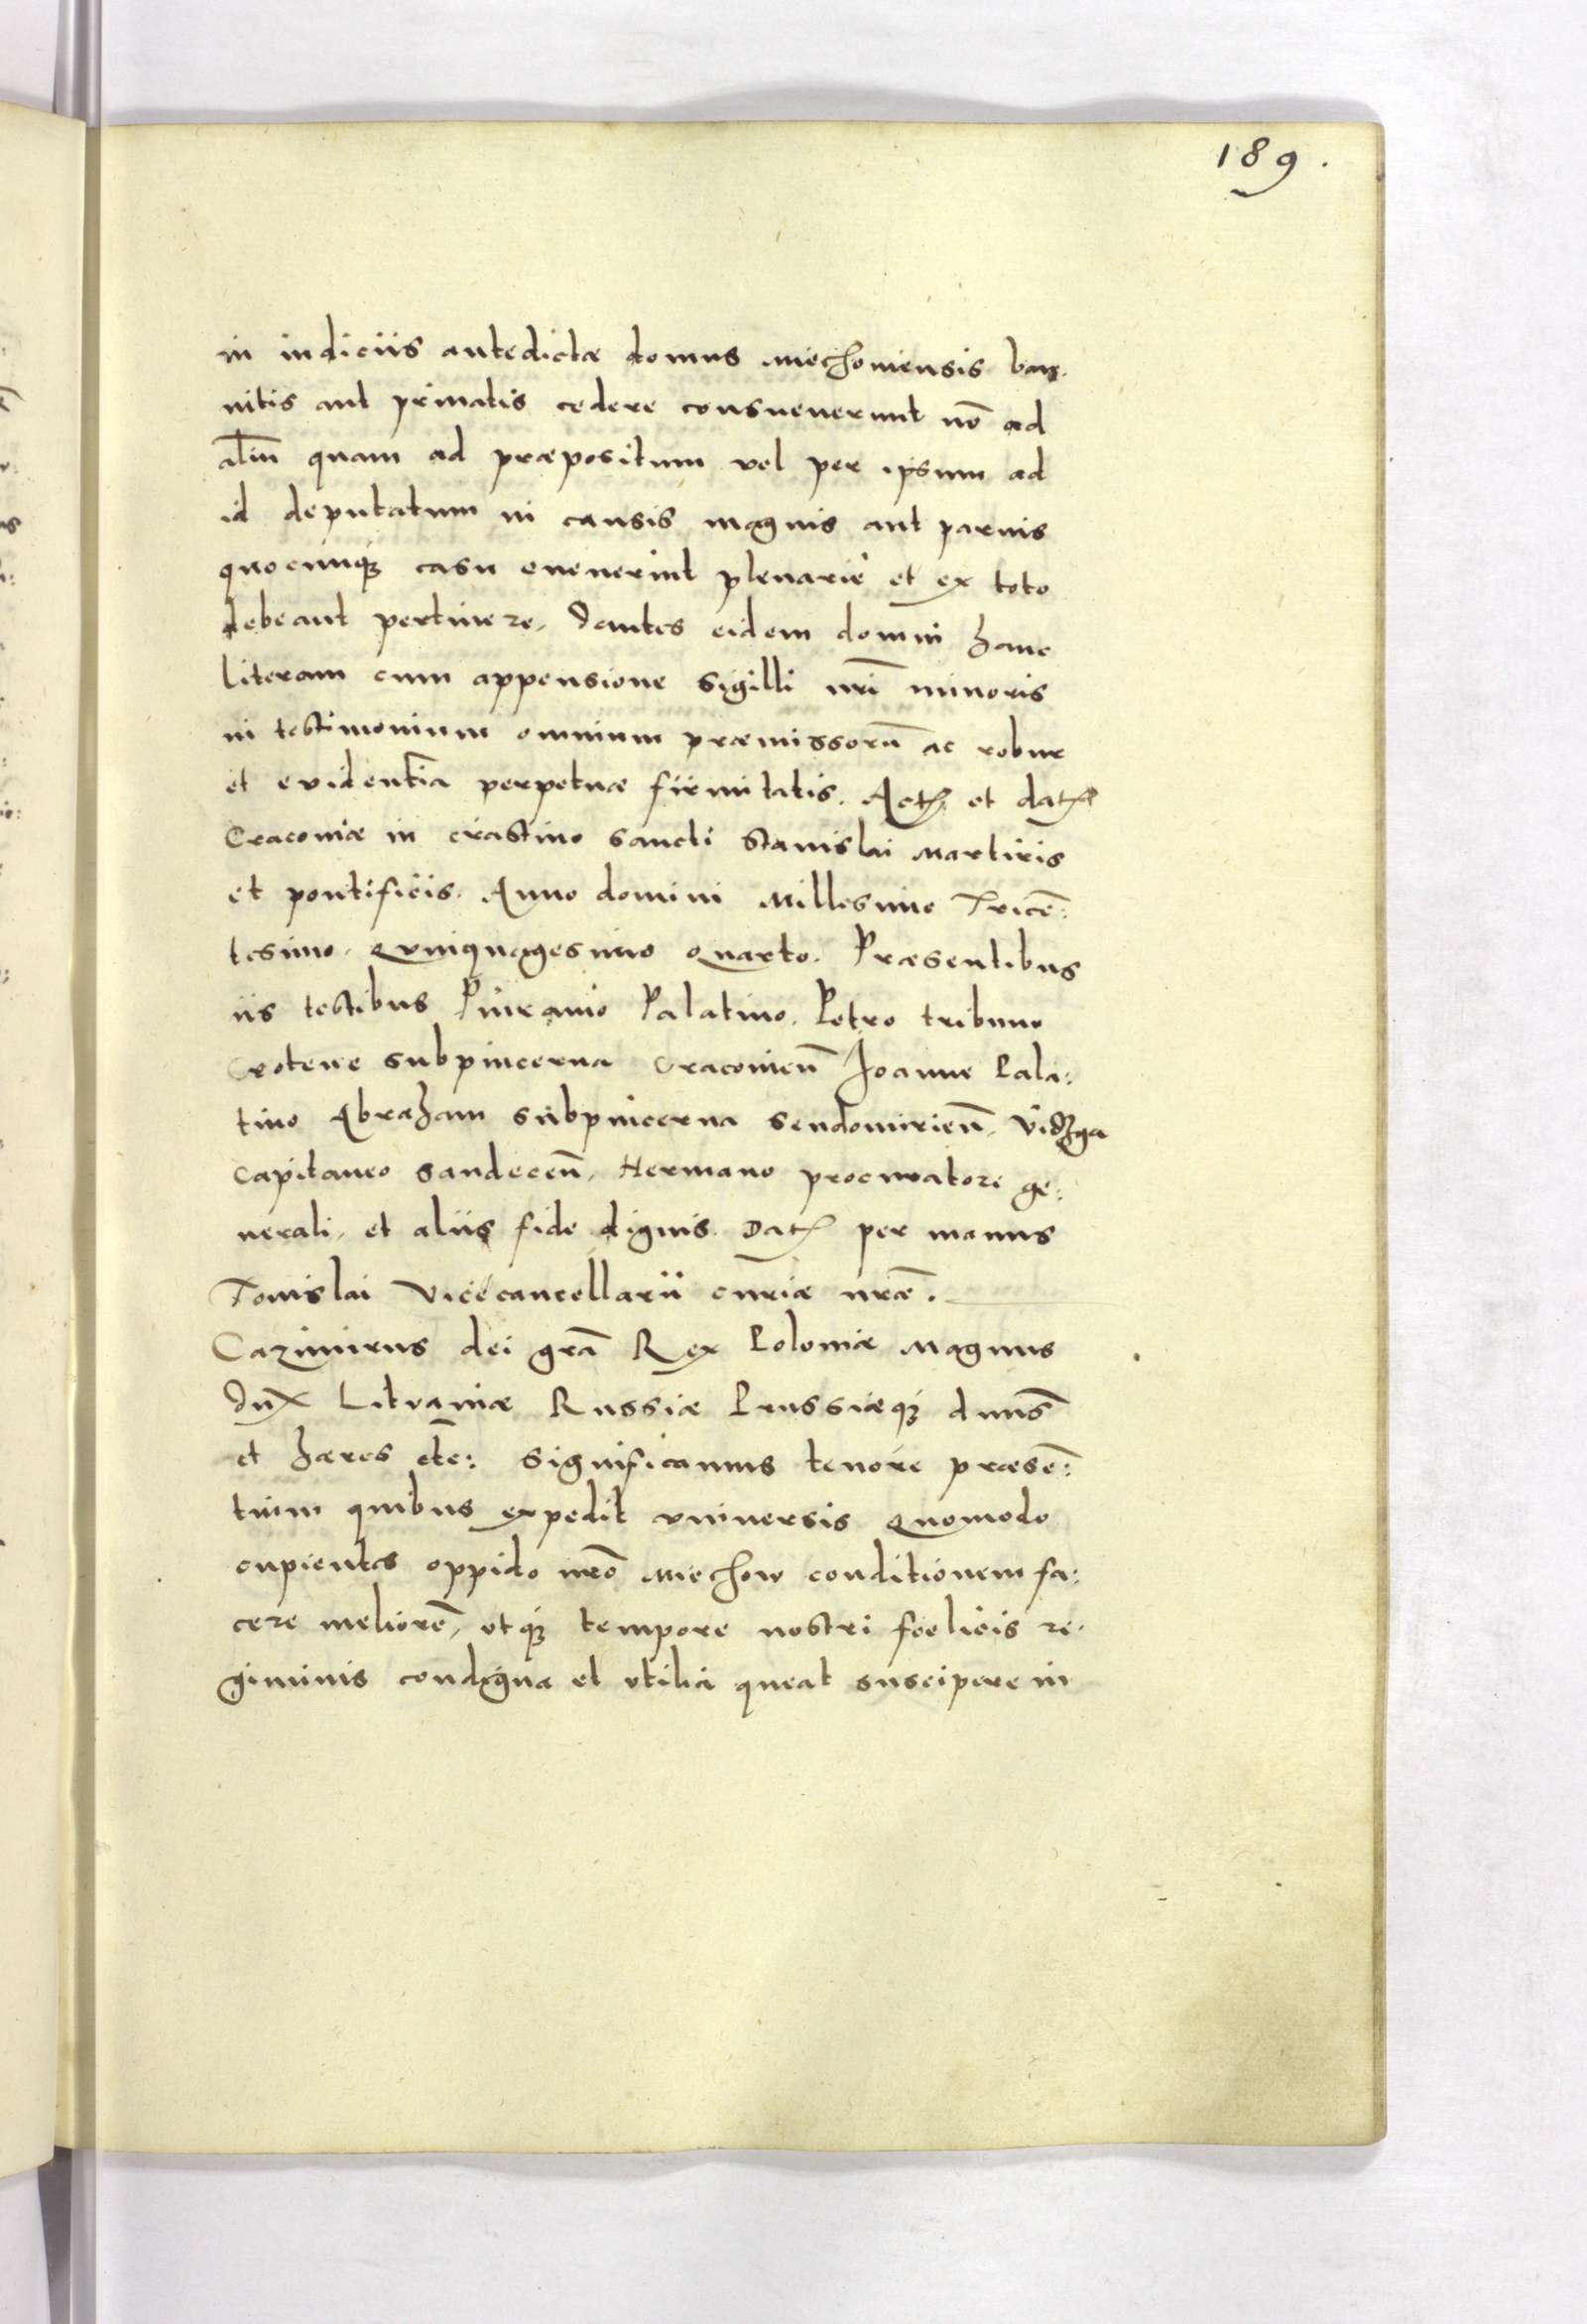 189.
in iudiciis antedictæ domus Mechouiensis ban:
nitis aut priuatis cedere consueuerunt nō ad
aliū quam ad præpositum vel per ipsum ad
id deputatum in causis magnis aut paruis
quocunq3 casu euenerint plenarie et ex toto
debeant pertinere, dantes eidem domui hanc
literam cum appensione sigilli nr̄i minoris
in testimonium omnium præmissorū ac robur
et euidentiā perpetuæ firmitatis. Act. et dat.
Cracouiæ in crastino sancti Stanislai Martiris
et pontificis. Anno domini Millesimo Tricē:
tesimo. Quinquagesimo Quarto. Præsentibus
iis testibus Imramo Palatino. Petro tribuno
Crotene subpincerna Cracouien̄ Ioanne Pala:
tino Abraham subpincerna Sendomirien̄, Vidzga
capitaneo Sandecen̄, Hermano procuratore ge:
nerali, et aliis fide dignis. Dat. per manus
Tomislai Vicecancellarii curiæ nr̄æ.
Cazimirus dei gr̄a Rex Poloniæ Magnus
dux Lituaniæ Russiæ Prussiæq3 dnus̄
et hæres etc̄: Significamus tenore præsē:
tium quibus expedit vniuersis Quomodo
cupientes oppido nr̄o Miechow conditionem fa:
cere meliorē, vt q3 tempore nostri foelicis re:
giminis condigna et vtilia queat suscipere in